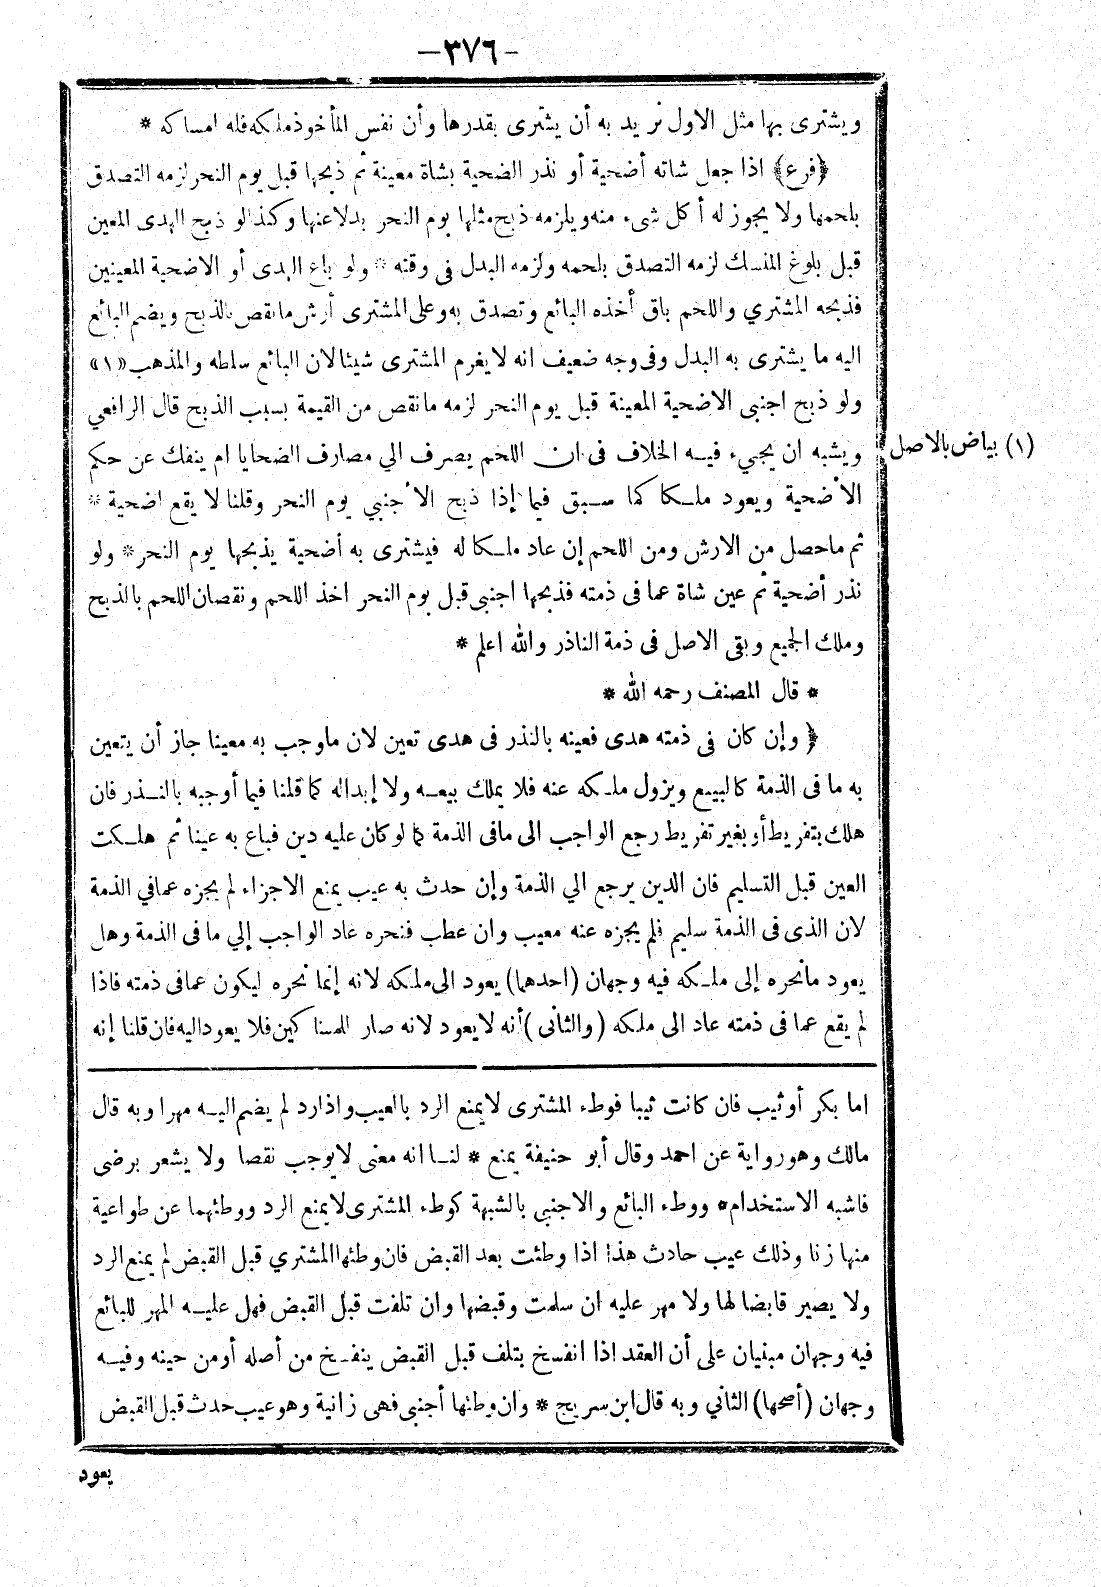 -٣٧٦-
ويشترى بها مثل الاول نريد به أن يشترى بقدرها وأن نفس المأخوذ ملكه فله امساكه *
﴿فرع﴾ اذا جعل شاته أضحية أو نذر الضحية بشاة معينة ثم ذبحها قبل يوم النحر لزمه التصدق
بلحمها ولا يجوز له أكل شىء منه ويلزمه ذبح مثلها يوم النحر بدلا عنها وكذا لو ذبح الهدى المعين
قبل بلوغ المنسك لزمه التصدق بلحمه ولزمه البدل فى وقته * ولو باع الهدى أو الاضحية المعينين
فذبحه المشتري واللحم باق أخذه البائع وتصدق به وعلى المشترى أرش ما نقص بالذبح ويضم البائع
اليه ما يشترى به البدل وفى وجه ضعيف انه لا يغرم المشترى شيئا لان البائع سلطه والمذهب «١»
ولو ذبح اجنبى الاضحية المعينة قبل يوم النحر لزمه ما نقص من القيمة بسبب الذبح قال الرافعي
ويشبه ان يجيء فيه الخلاف فى ان اللحم يصرف الي مصارف الضحايا ام ينفك عن حكم
(١) بياض بالاصل
الأضحية ويعود ملكا كما سبق فيما إذا ذبح الأجنبي يوم النحر وقلنا لا يقع اضحية *
ثم ماحصل من الارش ومن اللحم إن عاد ملكا له فيشترى به أضحية يذبحها يوم النحر * ولو
نذر أضحية ثم عين شاة عما فى ذمته فذبحها اجنبى قبل يوم النحر اخذ اللحم ونقصان اللحم بالذبح
وملك الجميع وبقى الاصل فى ذمة الناذر والله اعلم *
* قال المصنف رحمه الله *
﴿ وإن كان في ذمته هدى فعينه بالنذر فى هدى تعين لان ماوجب به معينا جاز أن يتعين
به ما فى الذمة كالبيع ويزول ملكه عنه فلا يملك بيعه ولا إبداله كما قلنا فيما أوجبه بالنذر فان
هلك بتفريط أو بغير تفريط رجع الواجب الى مافى الذمة كما لو كان عليه دين فباع به عينا ثم هلكت
العين قبل التسليم فان الدين يرجع الي الذمة وإن حدث به عيب يمنع الاجزاء لم يجزه عمافي الذمة
لان الذى فى الذمة سليم فلم يجزه عنه معيب وان عطب فنحره عاد الواجب إلي ما فى الذمة وهل
يعود مانحره إلى ملكه فيه وجهان (احدهما) يعود الى ملكه لانه إنما نحره ليكون عمافى ذمته فاذا
لم يقع عما فى ذمته عاد الى ملكه (والثانى) أنه لا يعود لانه صار للمساكين فلا يعود اليه فان قلنا إنه
اما بكر أو ثيب فان كانت ثيبا فوطء المشترى لا يمنع الرد بالعيب واذا رد لم يضم اليه مهرا وبه قال
مالك وهو رواية عن احمد وقال أبو حنيفة يمنع * لنا انه معنى لا يوجب نقصا ولا يشعر برضى
فاشبه الاستخدام * ووطء البائع والاجنبى بالشبهة كوطء المشترى لا يمنع الرد ووطئهما عن طواعية
منها زنا وذلك عيب حادث هذا اذا وطئت بعد القبض فان وطئها المشتري قبل القبض لم يمنع الرد
ولا يصير قابضا لها ولا مهر عليه ان سلمت وقبضها وان تلفت قبل القبض فهل عليه المهر للبائع
فيه وجهان مبنيان على أن العقد اذا انفسخ بتلف قبل القبض ينفسخ من أصله أو من حينه وفيه
وجهان (أصحها) الثاني وبه قال ابن سريج * وان وطئها أجنبى فهى زانية وهو عيب حدث قبل القبض
يعود